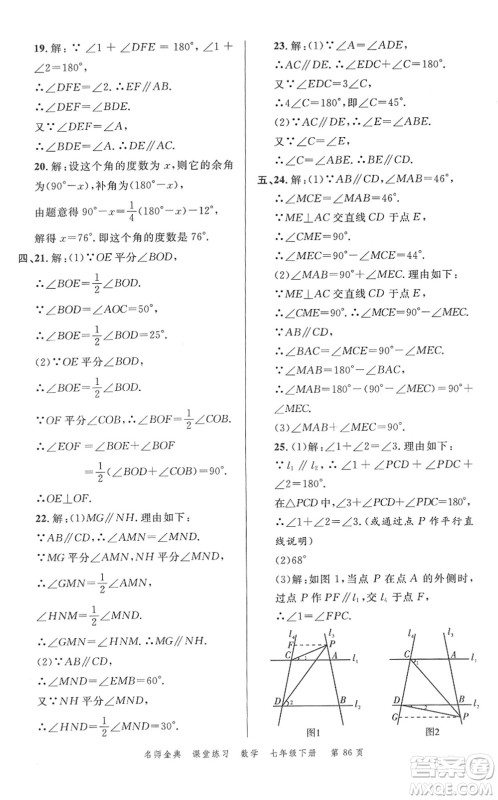 19. 解：∵∠1＋∠DFE＝180°，∠1＋
∠2＝180°，
∴∠DFE＝∠2. ∴EF∥AB.
∴∠DEF＝∠BDE.
又∵∠DEF＝∠A，
∴∠BDE＝∠A.
20. 解：设这个角的度数为x，则它的余角
为(90°－x)，补角为(180°－x).
由题意得90°－x＝1/4(180°－x)－12°，
解得x＝76°. 即这个角的度数为76°.
四、21. 解：(1)∵OE平分∠BOD，
∴∠BOE＝1/2∠BOD.
∵∠BOD＝∠AOC＝50°，
∴∠BOE＝1/2∠BOD＝25°.
(2)∵OE平分∠BOD，
∴∠BOE＝1/2∠BOD.
∵OF平分∠COB，∴∠BOF＝1/2∠COB，
∴∠EOF＝∠BOE＋∠BOF
＝1/2(∠BOD＋∠COB)＝90°.
∴OE⊥OF.
22. 解：(1)MG∥NH. 理由如下：
∵AB∥CD，∴∠AMN＝∠MND.
∵MG平分∠AMN，NH平分∠MND，
∴∠GMN＝1/2∠AMN，
∠HNM＝1/2∠MND.
∴∠GMN＝∠HNM. ∴MG∥NH.
(2)∵AB∥CD，
∴∠MND＝∠EMB＝60°.
又∵NH平分∠MND，
∴∠HND＝1/2∠MND＝30°.
23. 解：(1)∵∠A＝∠ADE，
∴AC∥DE. ∴∠EDC＋∠C＝180°.
又∵∠EDC＝3∠C，
∴4∠C＝180°，即∠C＝45°.
(2)∵AC∥DE，∴∠E＝∠ABE.
又∵∠C＝∠E，∴∠C＝∠ABE.
∴BE∥CD.
五、24. 解：(1)∵AB∥CD，∠MAB＝46°，
∴∠MEC＝∠MAB＝46°.
∵ME⊥AC交直线CD于点E，
∴∠CME＝90°.
∴∠MCE＝90°－∠MEC＝44°.
(2)∠MAB＝90°＋∠MCE. 理由如下：
∵ME⊥AC交直线CD于点E，
∴∠CME＝90°.
∴∠MEC＝90°－∠MCE.
∵AB∥CD，
∴∠MAB＝180°－∠MEC.
∴∠MAB＝180°－(90°－∠MCE)＝
90°＋∠MCE.
(3)∠MAB＋∠MEC＝90°.
25. (1)解：∠1＋∠2＝∠3. 理由如下：
∵l₁∥l₂，∴∠1＋∠PCD＋∠PDC＋∠2
＝180°.
在△PCD中，∠3＋∠PCD＋∠PDC＝180°，
∴∠1＋∠2＝∠3. (或通过点P作平行
线说明)
(2)68°
(3)解：如图1，当点P在A的外侧时，
过点P作PF∥l₁，交l₄于点F.
∴∠1＝∠FPC.
l₄ l₃ F P C A l₁ D 2 B l₂
图1
l₄ l₃ C A l₁ D B l₂ P
图2
名师金典 课堂练习 数学 七年级下册 第86页